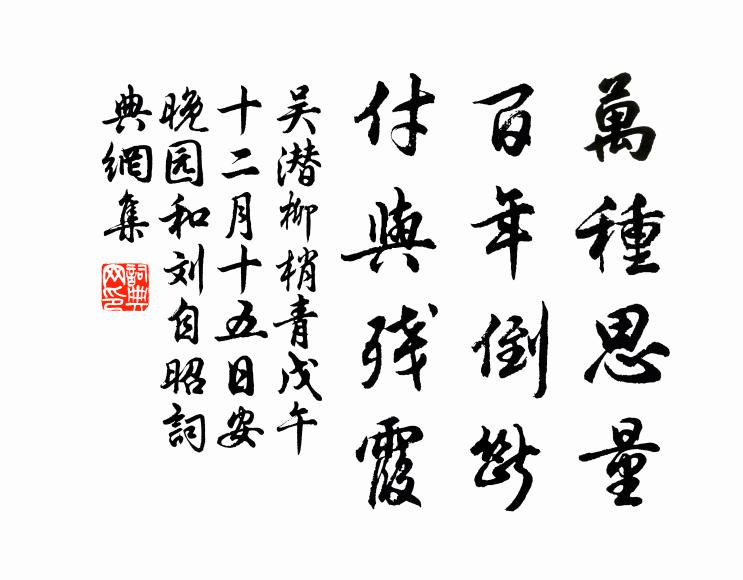 萬種思量
百年倒斷
付與殘霞
吴潜柳梢青戊午
十二月十五日安
晚园和刘自昭詞
典網集
詞典网印